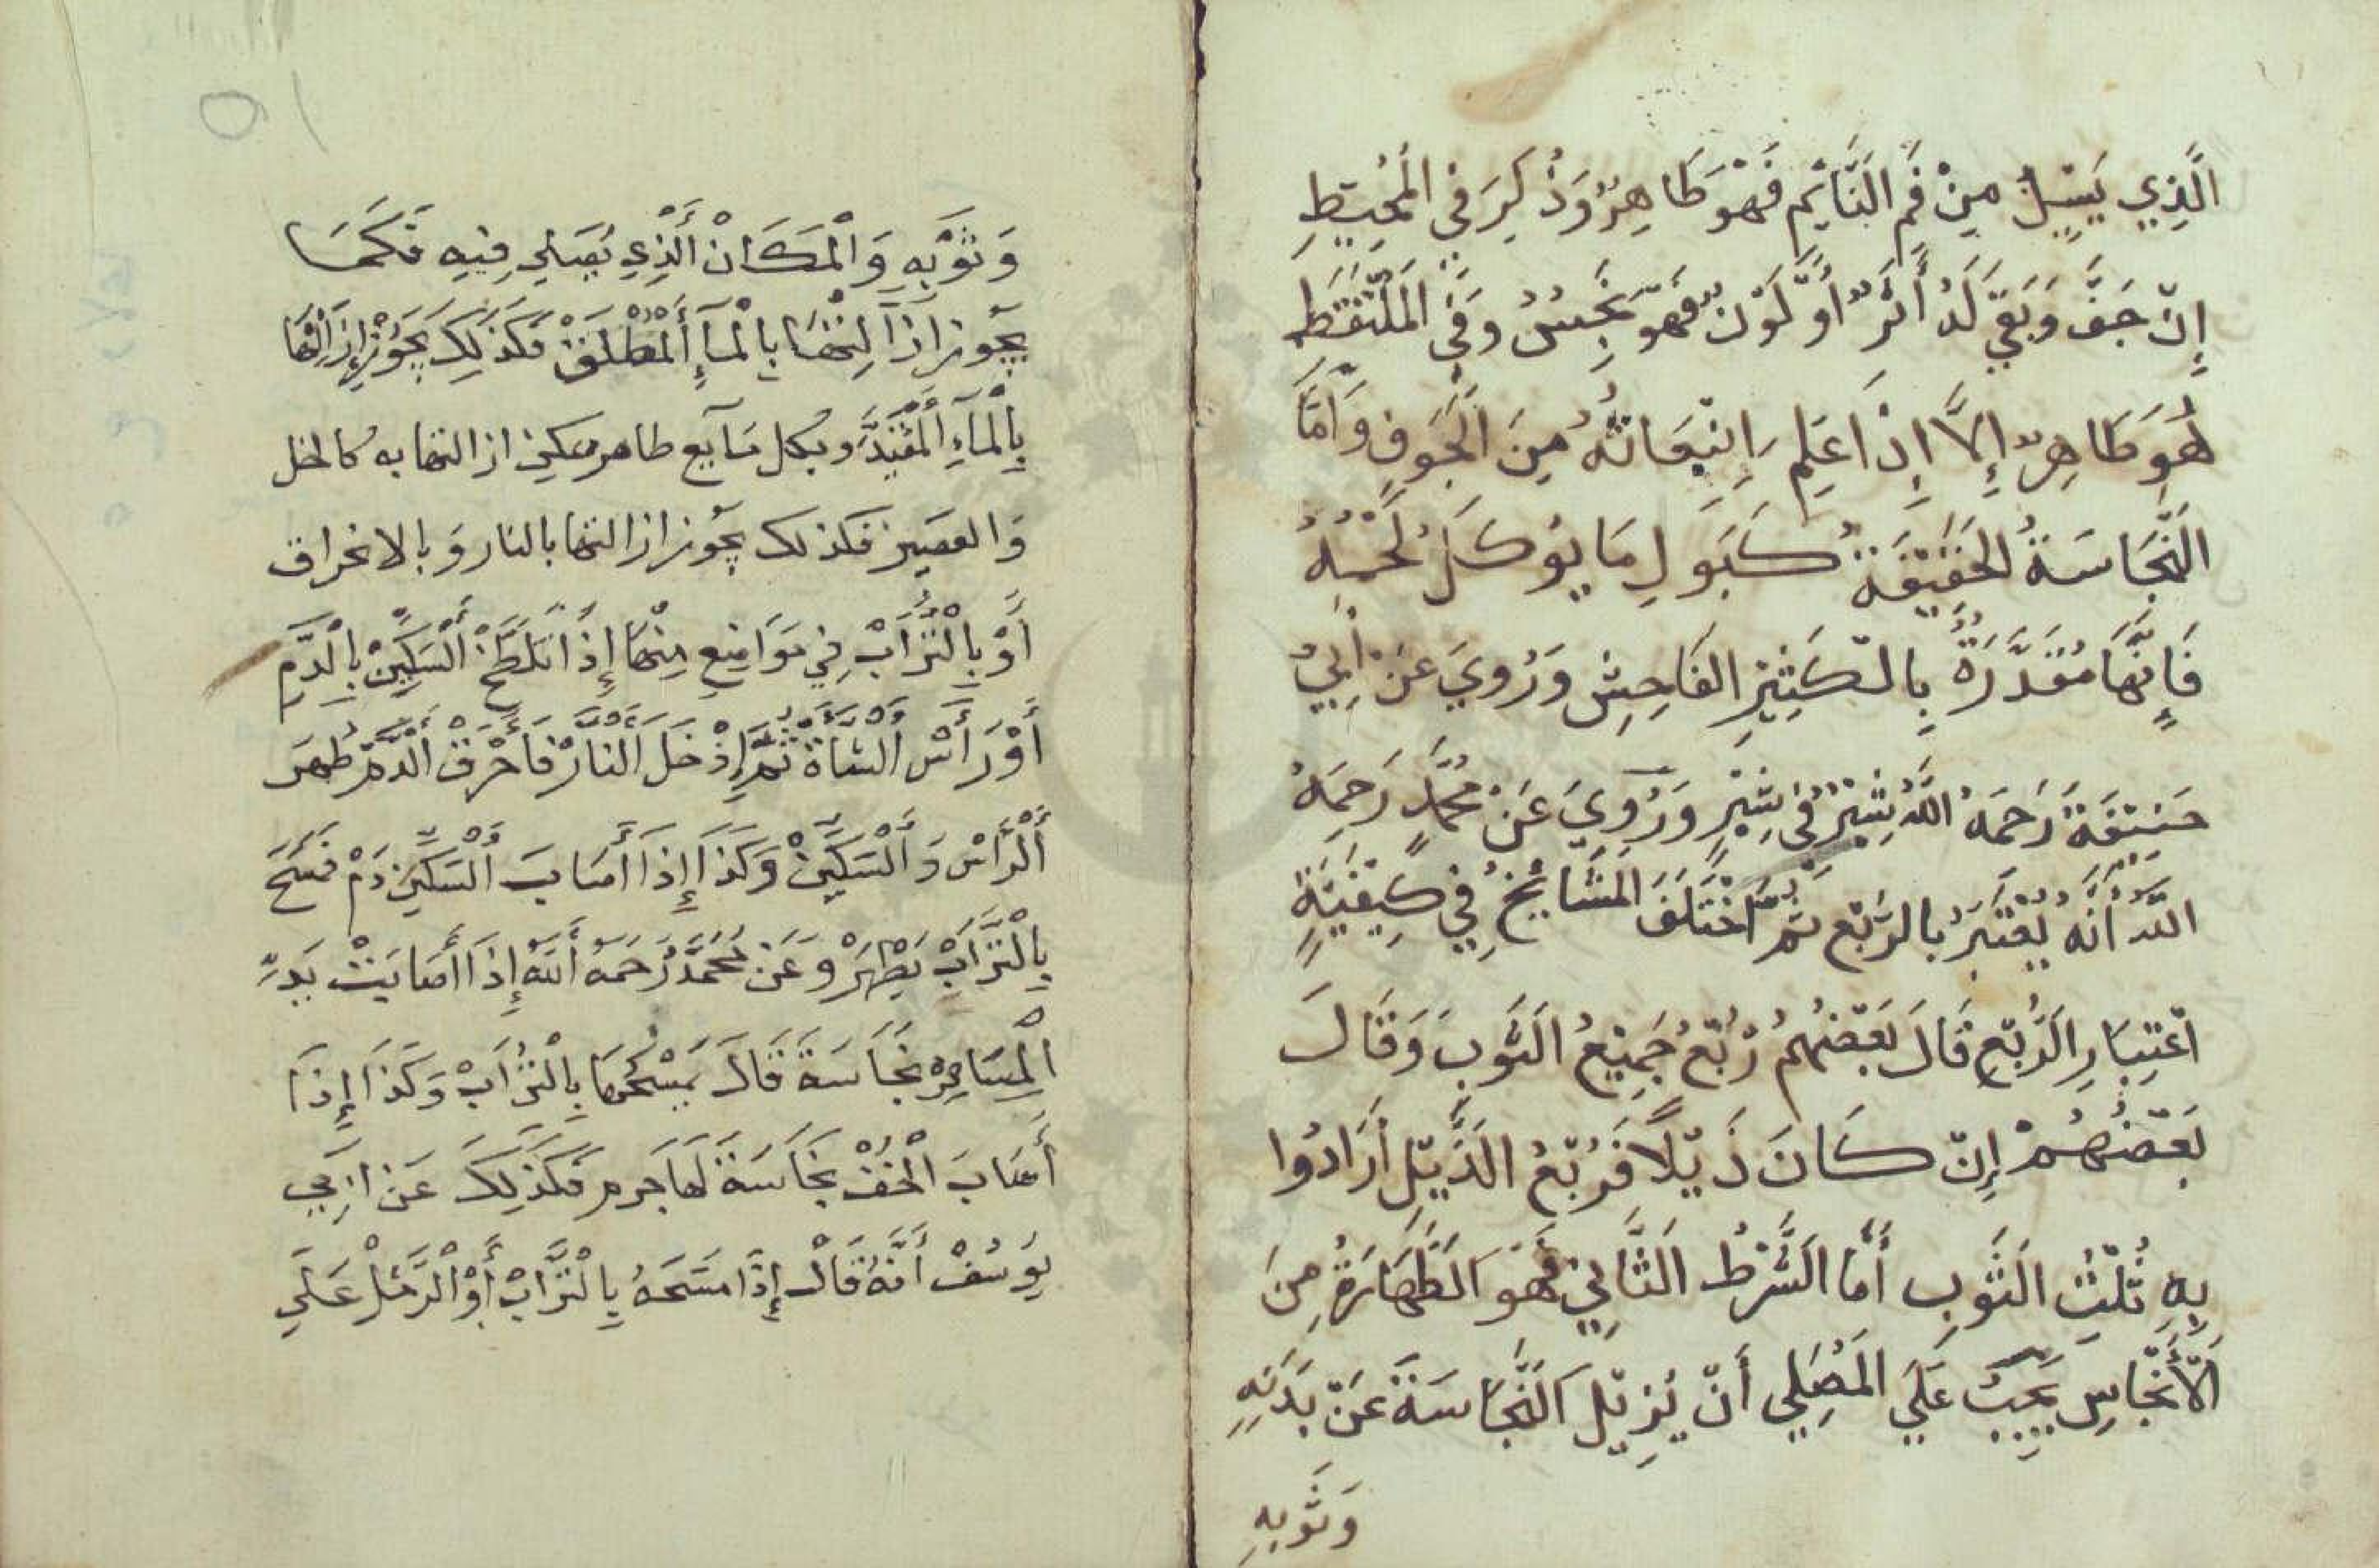 الَّذِي يَسِيْلُ مِنْ فَمِ النَّايِمِ فَهُوَ طَاهِرٌ وَذُكِرَ فِي الْمُحِيْطِ
إِنْ جَفَّ وَبَقِيَ لَهُ أَثَرٌ أَوْ لَوْنٌ فَهُوَ نَجِسٌ وَفِي الْمُلْتَقَطِ
هُوَ طَاهِرٌ إِلَّا إِذَا عَلِمَ اِنْبِعَاثَهُ مِنَ الْجَوفِ وَاَمَّا
النَّجَاسَةُ الحَقِيْقَةُ كَبَولِ مَا يُوكَلُ لَحْمُهُ
فَإِنَّهَا مُقَدَّرَةٌ بِالْكَثِيْرِ الفَاحِشِ وَرُوِيَ عَنْ أَبِي
حَنِيْفَةَ رَحِمَهُ اللَّهُ شِبْرٌ فِي شِبْرٍ وَرُوِيَ عَنْ مُحَمَّدٍ رَحِمَهُ
اللَّهُ أَنَّهُ يُعْتَبَرُ بِالرُبْعِ ثُمَّ اخْتَلَفَ الْمَشَايِخُ فِي كَيْفِيَّةِ
اعْتِبَارِ الرُّبْعِ قَالَ بَعْضُهُمْ رُبْعُ جَمِيْعُ الثَّوبَ وَقَالَ
بَعْضُهُمْ إِنْ كَانَ ذَيْلًا فَرُبْعُ الذَّيْلِ أَرَادُوا
بِهِ ثُلْثَ الثَوبِ أَمَّا الشَّرْطُ الثَّانِي فَهُوَ الطَّهَارَةُ مِنَ
الْأَنْجَاسِ يَجِبُ عَلَي الْمُصَلِي أَنْ يُزِيْلَ النَّجَاسَةَ عَنْ بَدَنِهِ
وَثَوبِهِ
١٥
وَثَوْبِهِ وَالْمَكَانْ أَلَّذِي يُصَلِي فِيهِ فَكَمَا
يَجُوز اِزَالَتُهَا بِالْمَآءِ أَلْمُطْلَقْ فَكَذَلِكَ يَجُوْزُ إِزَالَتُهَا
بِالْمَآءِ أَلْمُقَيَّدْ وبكل مَآيع طاهر يمكن ازالتها به كالخل
وَالعصير فكذلك يجُوز ازالتها بالنار وَبالاخراق
أَوْ بِالْتُرَّابْ فِي مَوَاضِعِ مِنْهَا إِذَا تَلَطَّخَ أَلْسَكِّيْنْ بِالْدَّمِ
أَوْرَأَسْ أَلْشَاةْ ثُمَّ إِدْخَلَ أَلْنَارْ فَأَحْرَقْ أَلْدَّمْ طُهِرَ
أَلْرَّأسْ وَأَلْسَكِّيْنْ وَكَذَا إِذَا أَصَابَ أَلْسَكِّيْنْ دَمْ فَمَسَحَ
بِالْتُرَّابْ يَطْهِرْ وَعَنْ مُحَمَّدْ رَحِمَهُ أَللَّهْ إِذَا أَصَابَتْ يَدِ
الْمِسَافِرْ نَجَاسَةَ قَالَ يَمْسَحُهَا بِالْتُرَابْ وَكَذَا إِذَا
أَصَابَ الْخُفْ نَجَاسَةَ لَهَا جرم فَكَذَلِكَ عَنْ ابِي
يُوسُفْ أَنَّهُ قَالْ إِذَا مَسَحَهُ بِالْتُرَّابْ أَوْ الْرَّمْلْ عَلَي